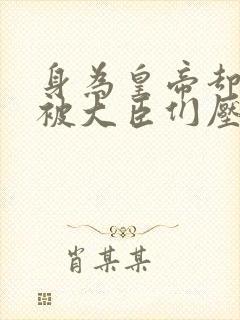 身為皇帝卻
被大臣们壓
肖某某